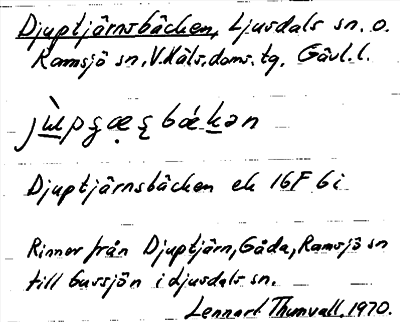 Djuptjärnsbäcken, Ljusdals sn. o.
Ramsjö sn, V. Häls. doms. tg. Gävl. l.
Djuptjärnsbäcken ek 16F 6i
Rinner från Djuptjärn, Gåda, Ramsjö sn
till Gussjön i Ljusdals sn.
Lennart Thunvall, 1970.